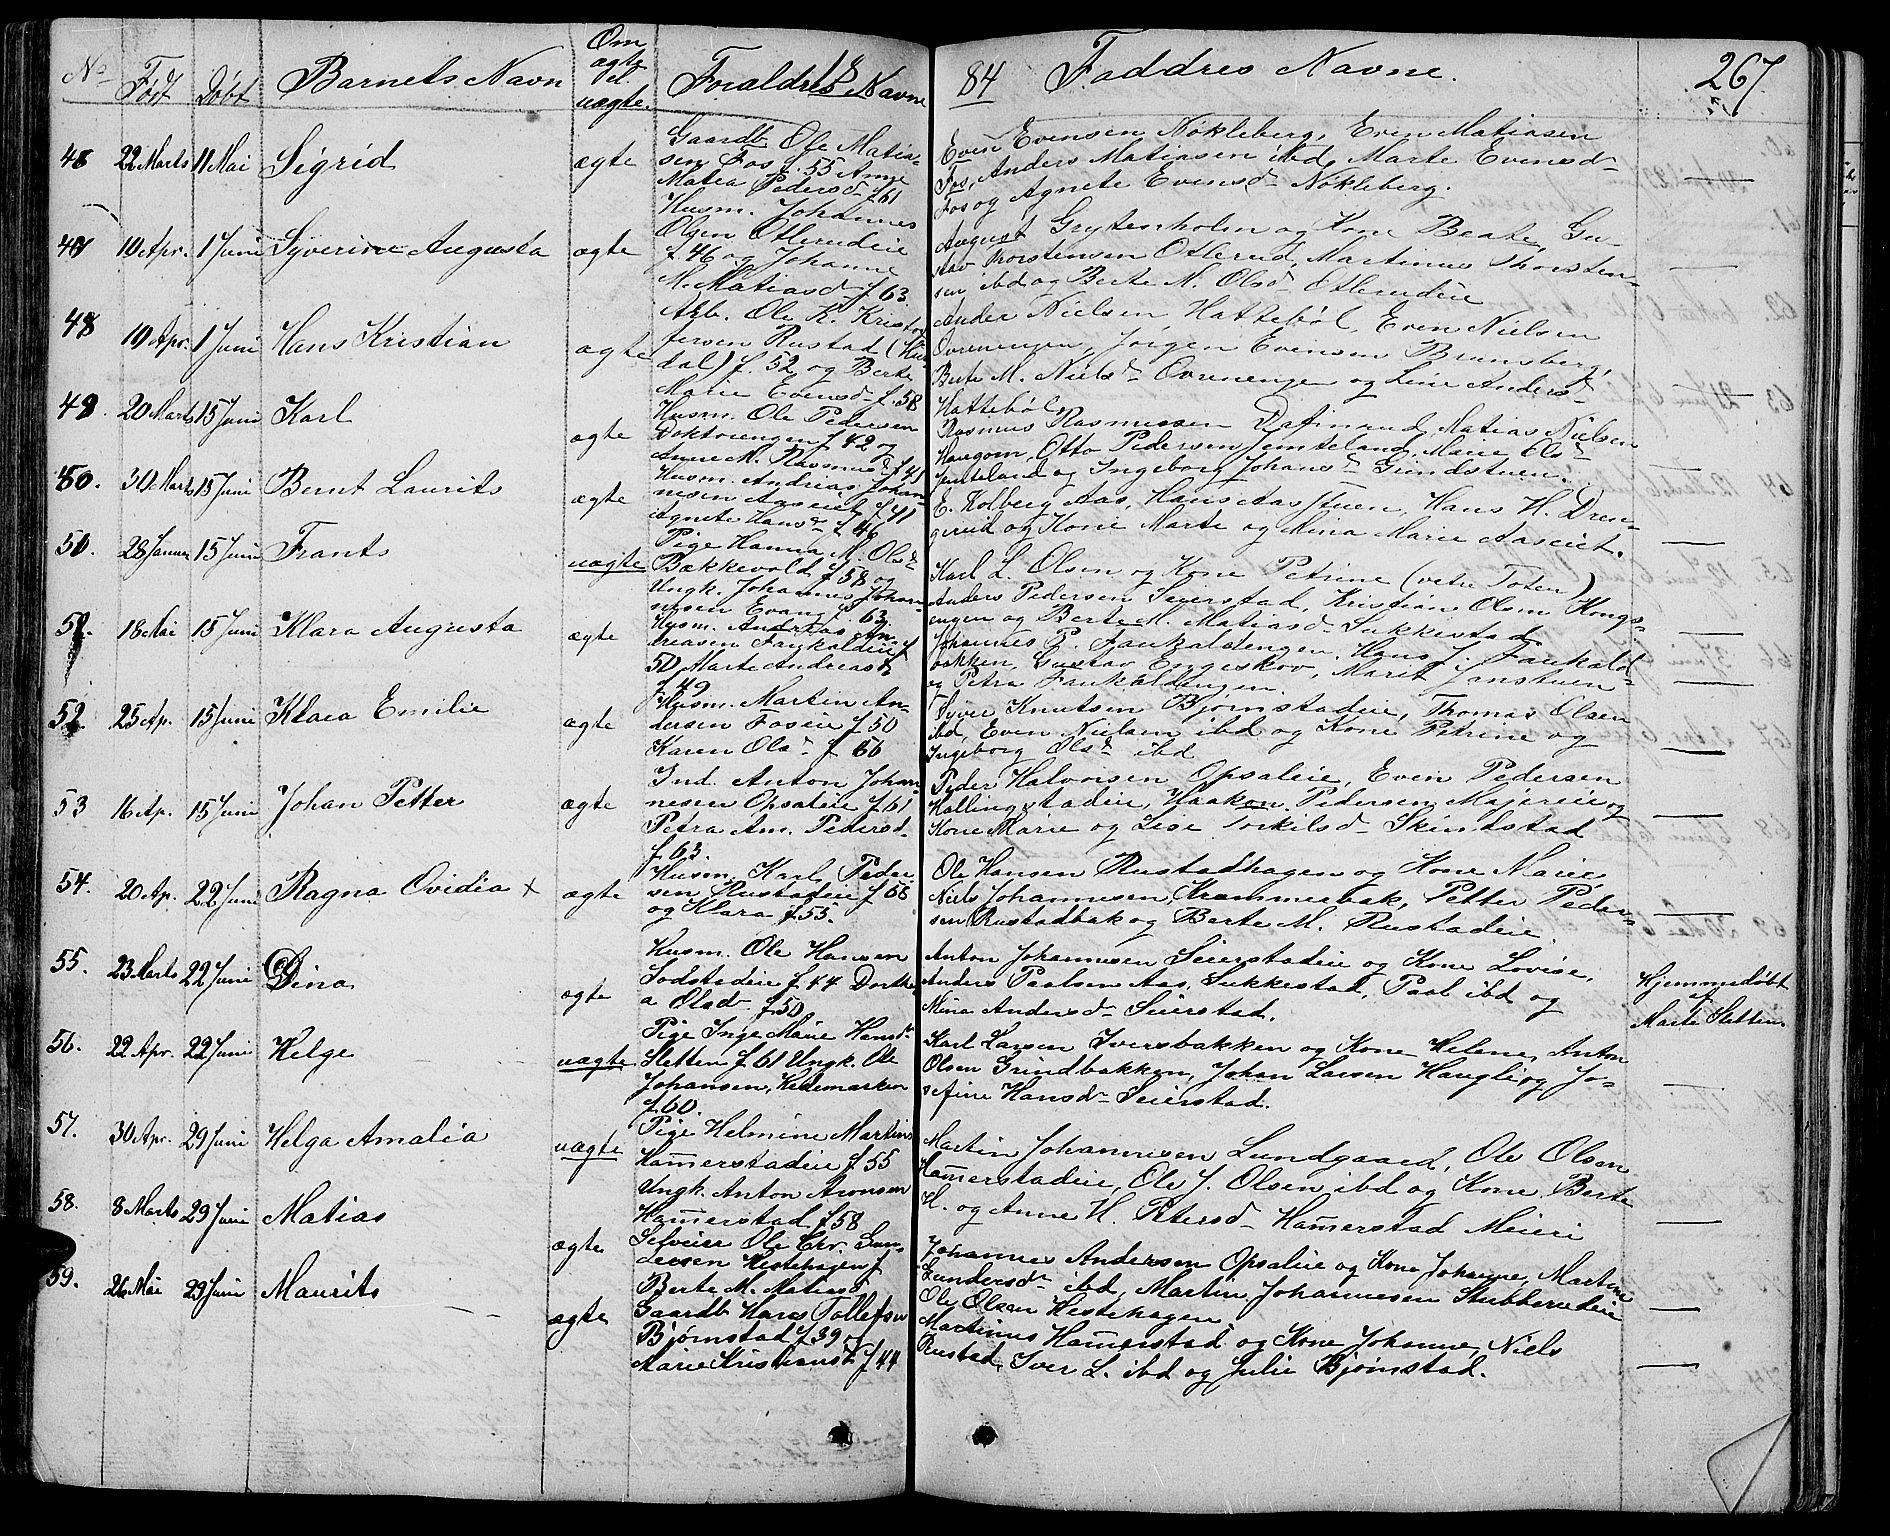 No Født Døbt Barnets Navn Om ægte el. uægte. Foraldres Navne 18 84 Faddres Navne. 267
48 22 Marts 11 Mai Sigrid ægte
Gaardb. Ole Matia-
sen Fos f. 55 Anne
Matea Pedersd f 61
Even Evensen Nökleberg, Even Matiasen
Fos, Anders Matiasen ibd, Marte Evensd
Fos og Agnete Evensd Nökleberg.
47 10 Apr. 1 Juni Syverine Augusta ægte
Husm. Johannes
Olsen Otlerudeie
f. 46 og Johanne
M. Matiasd f 63.
August Grytenholm og Kone Beate, Gu-
stav Thorstensen Otlerud, Martinus Thorsten-
sen ibd og Berte N. Olsd Otlerudeie
48 19 Apr. 1 Juni Hans Kristian ægte
Arb. Ole K. Kristof
fersen Rustad (Hur
dal) f. 52 og Berte
Marie Evensd f. 58
Ander Nielsen Hattebøl, Even Nielsen
Øvrenengen, Jørgen Evensen Brunsberg,
Berte M. Nielsd Øvrenengen og Line Andersd
Hattebøl
49. 20 Marts 15 Juni Karl ægte
Husm. Ole Pedersen
Doktorengen f 42 og
Anne M. Rasmusd f 41
Rasmus Rasmussen Dafinrud, Matias Nielsen
Haugom, Otto Pedersen Jemteland, Marie Olsd
Jemteland og Ingeborg Johansd Grindstuen.
50. 30 Marts 15 Juni Bernt Laurits ægte
Husm. Andreas Johan-
nesen Aaseiet f 41
Agnete Hansd f 46
E. Kolberg Aas, Hans Aasstuen, Hans H. Dren-
gerud og Kone Marte og Mina Marie Aaseiet.
50. 28 Januar 15 Juni Frants uægte
Pige Hanna M. Olsd
Bækkevold f 58 og
Ungk. Johannes Johan-
nesen Evang f 63.
Karl L. Olsen og Kone Petrine (vetre Toten)
Anders Pedersen Seierstad, Kristian Olsen Kongs-
engen og Berte M. Matiasd Sukkestad
51. 18 Mai 15 Juni Klara Augusta ægte
Husm. Andreas An-
dreasen Faukaldeie f
50 Marte Andreasd
f 49
Johannes P. Faukaldengen, Hans J. Faukald-
bakken, Gustav Engeskov, Marit Janstuen
og Petra Faukaldengen.
52. 25 Ap. 15 Juni Klara Emilie ægte
Husm. Martin An-
dersen Foseie f 50
Karen Olsd f 56
Syver Knutsen Bjørnstadeie, Thomas Olsen
ibd, Even Nielsen ibd og Kone Petrine og
Ingeborg Olsd ibd
53 16 Ap. 15 Juni Johan Petter ægte
Ind. Anton Johan-
nesen Opsaleie f 61
Petra Am. Pedersd.
f 63.
Peder Halvorsen Opsaleie, Even Pedersen
Hallingstadeie, Haaken Pedersen Majereie og
Kone Marie og Lise Torkilsd Skindstad
54. 20 Ap. 22 Juni Ragna Ovidia + ægte
Husm. Karl Peder-
sen Rustadeie f 56
og Klara f. 55.
Ole Hansen Rustadhagen og Kone Marie,
Niels Johannesen Krammerbak, Petter Peder-
sen Rustadbak og Berte M. Rustadeie.
55. 23 Marts 22 Juni Dina ægte
Husm. Ole Hansen
Sodstadeie f 44 Dorthe
a Olsd f. 50
Anton Johannesen Seierstadeie og Kone Lovise,
Anders Paalsen Aas, Sukkestad, Paal ibd og
Mina Andersd Seierstad.
Hjemmedøbt
af
Marte Sletten
56. 22 Apr. 22 Juni Helge uægte
Pige Inge Marie Hansd
Sletten f 61 Ungk. Ole
Johansen, Hedemarken
f 60.
Karl Larsen Iversbakken og Kone Helene, Anton
Olsen Grindbakken, Johan Larsen Haugli og Jo-
sefine Hansd Seierstad.
57. 30 Apr. 29 Juni Helga Amalia uægte
Pige Helmine Martins
Hamerstadeie f 55
Ungk. Anton Aronsen
Hamerstad f 58
Martin Johannesen Lundgaard, Ole Olsen
Hamerstadeie, Ole J. Olsen ibd og Kone Berte
H. og Anne H. Petersd Hamerstad Meieri
58. 8 Marts 29 Juni Matias ægte
Selveier Ole Chr. Gun-
dersen Hestehagen f
Berte M. Matiasd
Johannes Andersen Opsaleie og Kone Johanne, Martine
Gundersd ibd, Martin Johannesen Stubberudeie
Ole Olsen Hestehagen
59. 26 Mai 29 Juni Maurits ægte
Gaardb. Hans Tollefsen
Bjørnstad f 39 og
Marie Kristiansd f 44
Martinus Hamerstad og Kone Johanne, Niels
Rustad, Iver L. ibd og Julie Bjørnstad.